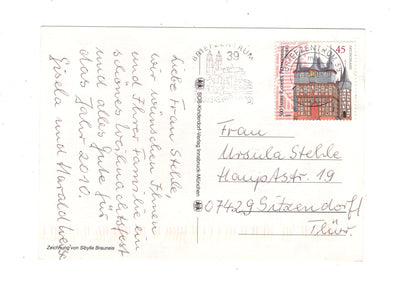 Liebe Frau Stehle,
wir wünschen Ihnen
und Ihrer Familie ein
schönes Weihnachtsfest
und alles Gute für
das Jahr 2010.
Gisela und Harald
Zeichnung von Sibylle Brauneis
SOS-Kinderdorf-Verlag Innsbruck-München
BRIEFZENTRUM
39
45
Frau
Ursula Stehle
Hauptstr. 19
07429 Sitzendorf
Thür.